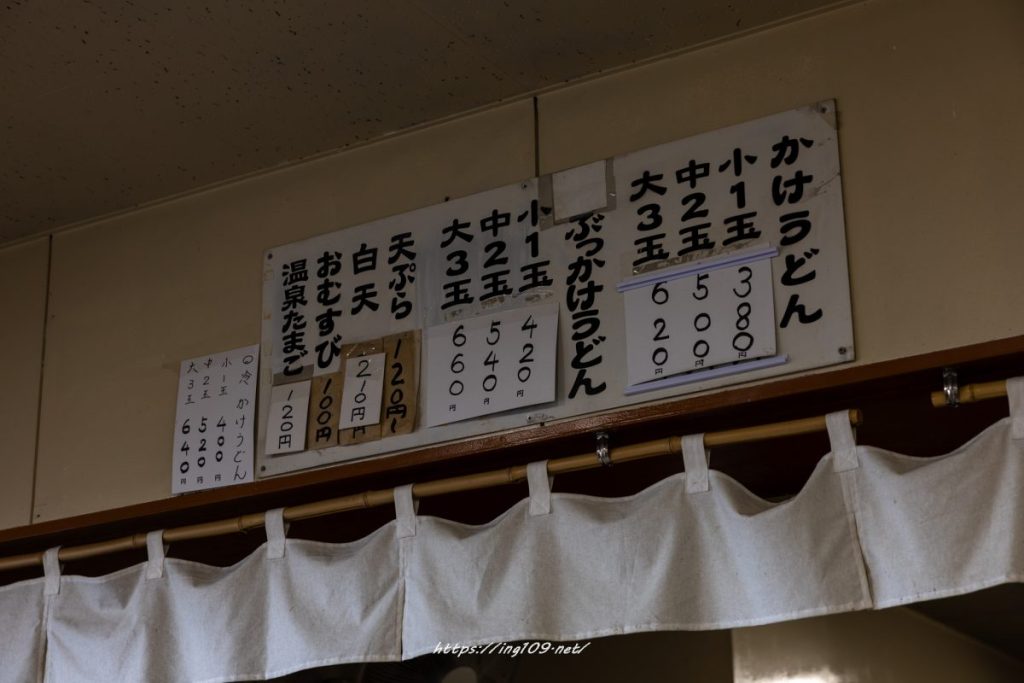 かけうどん
小1玉 380円
中2玉 500円
大3玉 620円
ぶっかけうどん
小1玉 420円
中2玉 540円
大3玉 660円
天ぷら 120円〜
白天 210円
おむすび 100円
温泉たまご 120円
◎冷かけうどん
小1玉 400円
中2玉 520円
大3玉 640円
https://ing109.net/